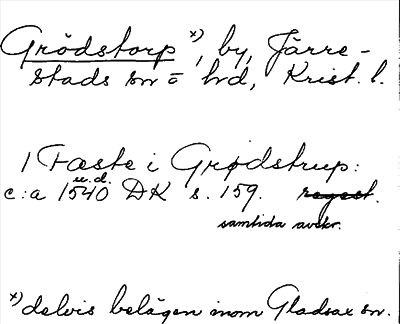 Grödstorp *), by, Järre-
stads sn o hd, Krist. l.
1 Fæste i Grødstrup:
u.d.
c:a 1540 DK s. 159. regest.
samtida avskr.
*) delvis belägen inom Gladsax sn.